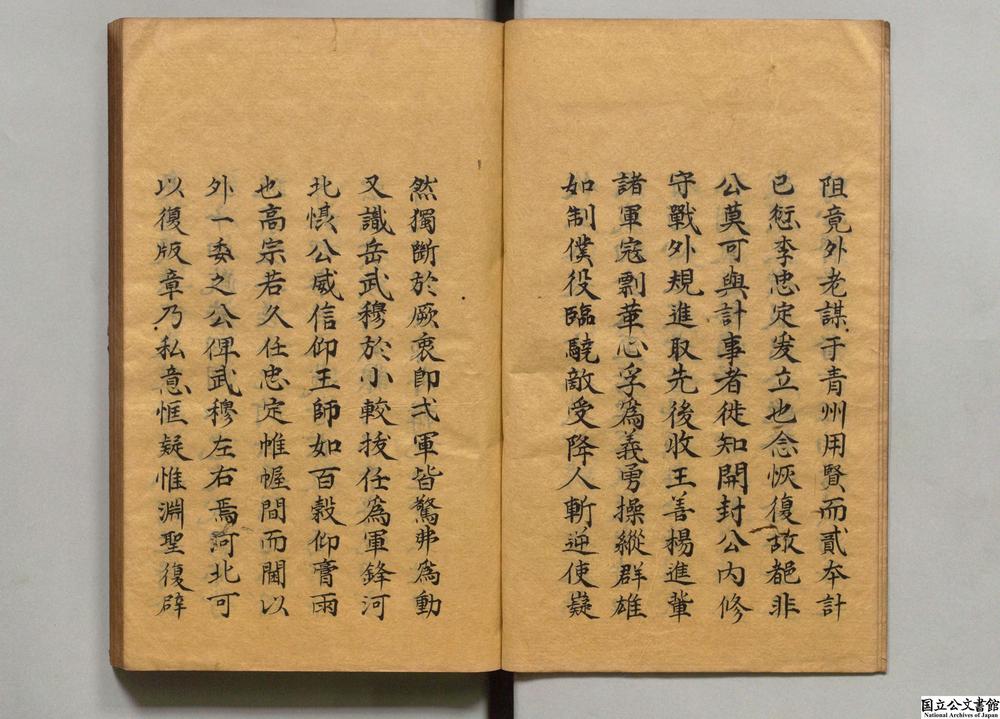 阻竟外老謀于青州用賢而貳本計
已愆李忠定爰立也念恢復故都非
公莫可與計事者徙知開封公內修
守戰外規進取先後收王善楊進輩
諸軍寇剽革心孚為義勇操縱群雄
如制僕役臨驍敵受降人斬迎使嶷
然獨斷於厥衷即弍軍皆驚弗為動
又識岳武穆於小較拔任為軍鋒河
北惧公威信仰王師如百穀仰膏雨
也高宗若久任忠定帷幄間而閫以
外一委之公俾武穆左右焉河北可
以復版章乃私意恇疑惟淵聖復辟
国立公文書館
National Archives of Japan